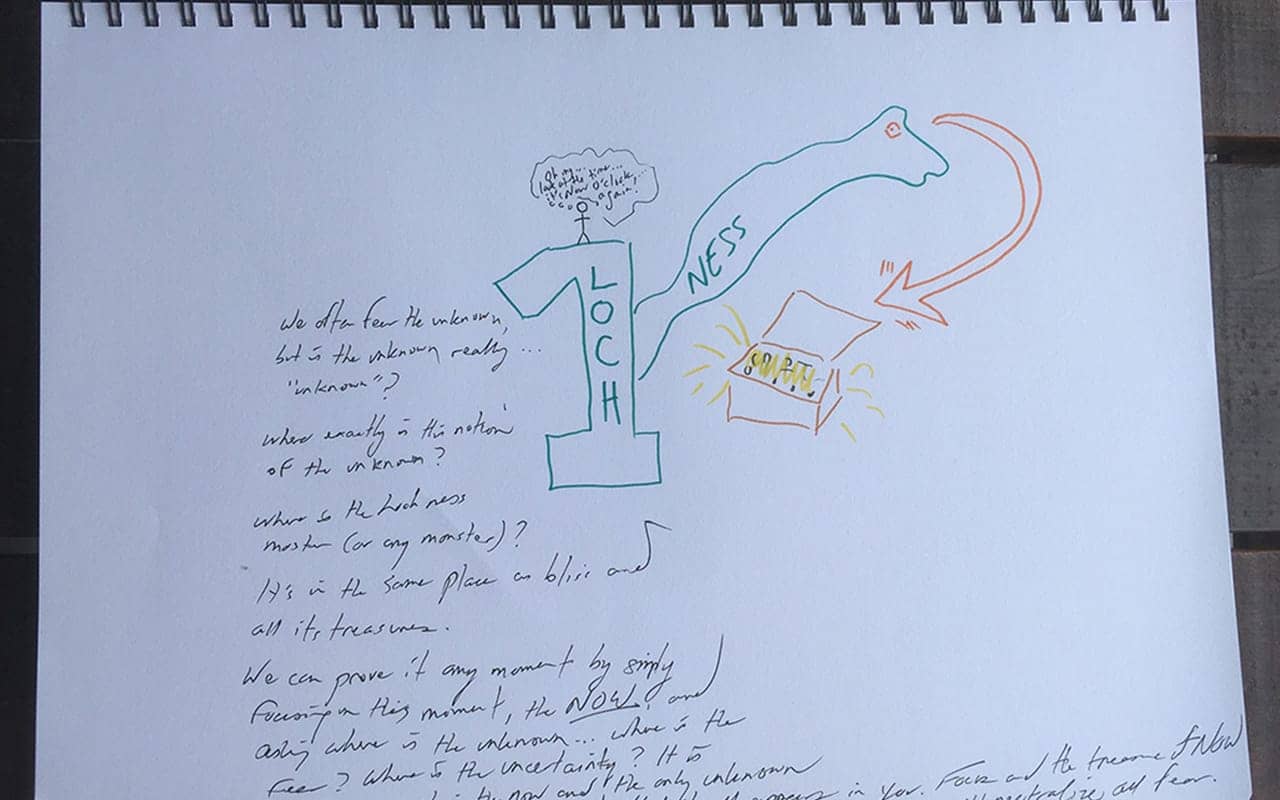 Oh my...
look at the time...
it's Now O'clock,...
again!
LOCH
NESS
We often fear the unknown,
but is the unknown really ...
"unknown"?
where exactly is this notion
of the unknown?
where is the Loch ness
monster (or any monster)?
It's in the same place as bliss and
all its treasures.
We can prove it any moment by simply
focusing on this moment, the NOW, and
asking where is the unknown... where is the
fear? where is the uncertainty? It is
the now and the only unknown
appears in you. Focus and the treasure of Now
neutralize all fear.